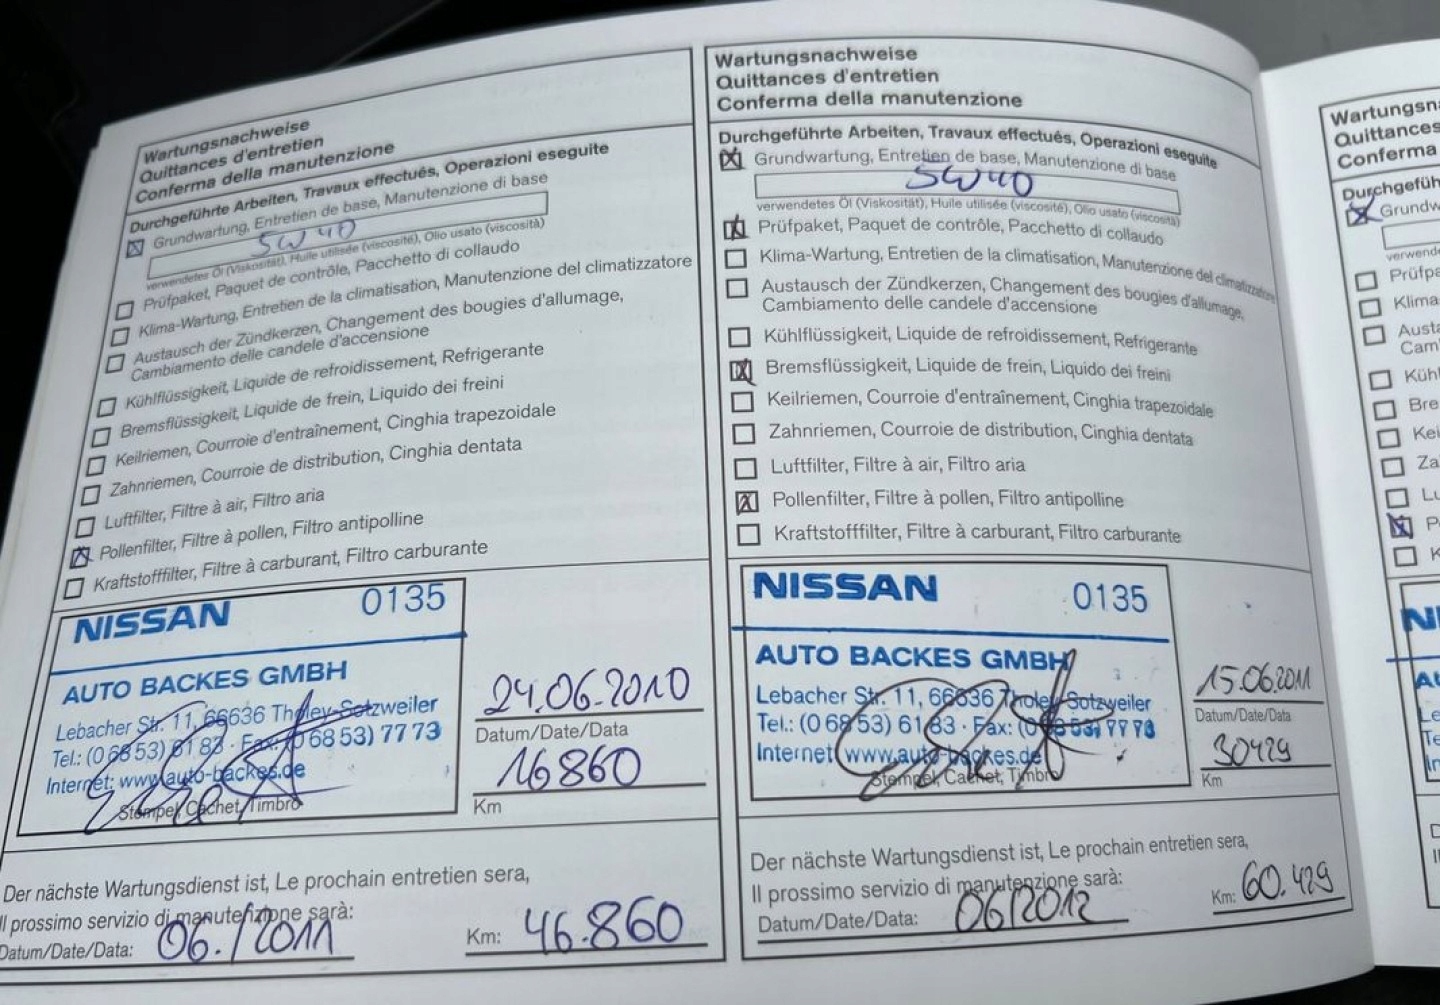 Wartungsnachweise
Quittances d'entretien
Conferma della manutenzione
Durchgeführte Arbeiten, Travaux effectués, Operazioni eseguite
Grundwartung, Entretien de base, Manutenzione di base
5W40
verwendetes Öl (Viskosität), Huile utilisée (viscosité), Olio usato (viscosità)
Prüfpaket, Paquet de contrôle, Pacchetto di collaudo
Klima-Wartung, Entretien de la climatisation, Manutenzione del climatizzatore
Austausch der Zündkerzen, Changement des bougies d'allumage,
Cambiamento delle candele d'accensione
Kühlflüssigkeit, Liquide de refroidissement, Refrigerante
Bremsflüssigkeit, Liquide de frein, Liquido dei freini
Keilriemen, Courroie d'entraînement, Cinghia trapezoidale
Zahnriemen, Courroie de distribution, Cinghia dentata
Luftfilter, Filtre à air, Filtro aria
Pollenfilter, Filtre à pollen, Filtro antipolline
Kraftstofffilter, Filtre à carburant, Filtro carburante
NISSAN 0135
AUTO BACKES GMBH
Lebacher Str. 11, 66636 Tholey-Sotzweiler
Tel.: (0 68 53) 61 83 · Fax: (0 68 53) 77 73
Internet: www.auto-backes.de
Stempel, Cachet, Timbro
24.06.2010
Datum/Date/Data
16860
Km
Der nächste Wartungsdienst ist, Le prochain entretien sera,
Il prossimo servizio di manutenzione sarà:
Datum/Date/Data: 06./2011 Km: 46.860
Wartungsnachweise
Quittances d'entretien
Conferma della manutenzione
Durchgeführte Arbeiten, Travaux effectués, Operazioni eseguite
Grundwartung, Entretien de base, Manutenzione di base
5W40
verwendetes Öl (Viskosität), Huile utilisée (viscosité), Olio usato (viscosità)
Prüfpaket, Paquet de contrôle, Pacchetto di collaudo
Klima-Wartung, Entretien de la climatisation, Manutenzione del climatizzatore
Austausch der Zündkerzen, Changement des bougies d'allumage,
Cambiamento delle candele d'accensione
Kühlflüssigkeit, Liquide de refroidissement, Refrigerante
Bremsflüssigkeit, Liquide de frein, Liquido dei freini
Keilriemen, Courroie d'entraînement, Cinghia trapezoidale
Zahnriemen, Courroie de distribution, Cinghia dentata
Luftfilter, Filtre à air, Filtro aria
Pollenfilter, Filtre à pollen, Filtro antipolline
Kraftstofffilter, Filtre à carburant, Filtro carburante
NISSAN 0135
AUTO BACKES GMBH
Lebacher Str. 11, 66636 Tholey-Sotzweiler
Tel.: (0 68 53) 61 83 · Fax: (0 68 53) 77 73
Internet: www.auto-backes.de
Stempel, Cachet, Timbro
15.06.2011
Datum/Date/Data
30429
Km
Der nächste Wartungsdienst ist, Le prochain entretien sera,
Il prossimo servizio di manutenzione sarà:
Datum/Date/Data: 06/2012 Km: 60.429
Wartungsn
Quittances
Conferma
Durchgefüh
Grundw
verwende
Prüfpa
Klima
Austa
Cam
Kühl
Bre
Kei
Za
Lu
P
K